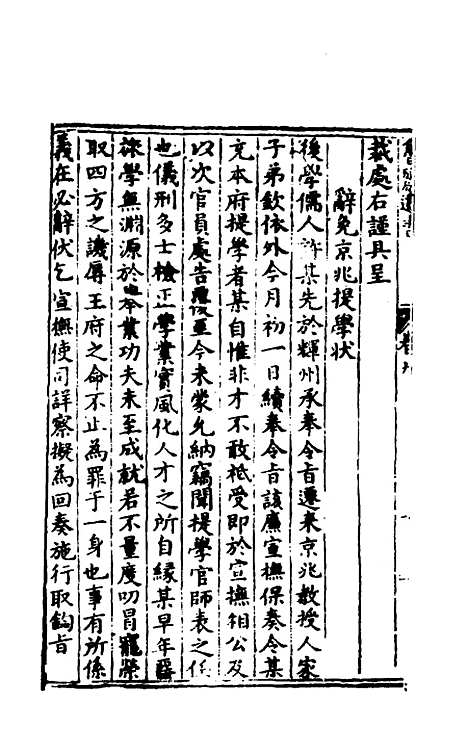 裁處右謹具呈
辭免京兆提學状
後學儒人許某先於輝州承奉令旨遷来京兆教授人家
子弟欽依外今月初一日續奉令旨該廉宣撫保奏令某
充本府提學者某自惟非才不敢祗受即於宣撫相公及
以次官員處告覆後至今未蒙允納竊聞提學官師表之任
也儀刑多士檢正學業實風化人才之所自緣某早年
學無淵源於古今業功夫未至成就若不量度叨冒寵榮
取四方之譏辱王府之命不止為罪于一身也事有所係
義在必辭伏乞宣撫使司詳察擬為回奏施行取鈞旨